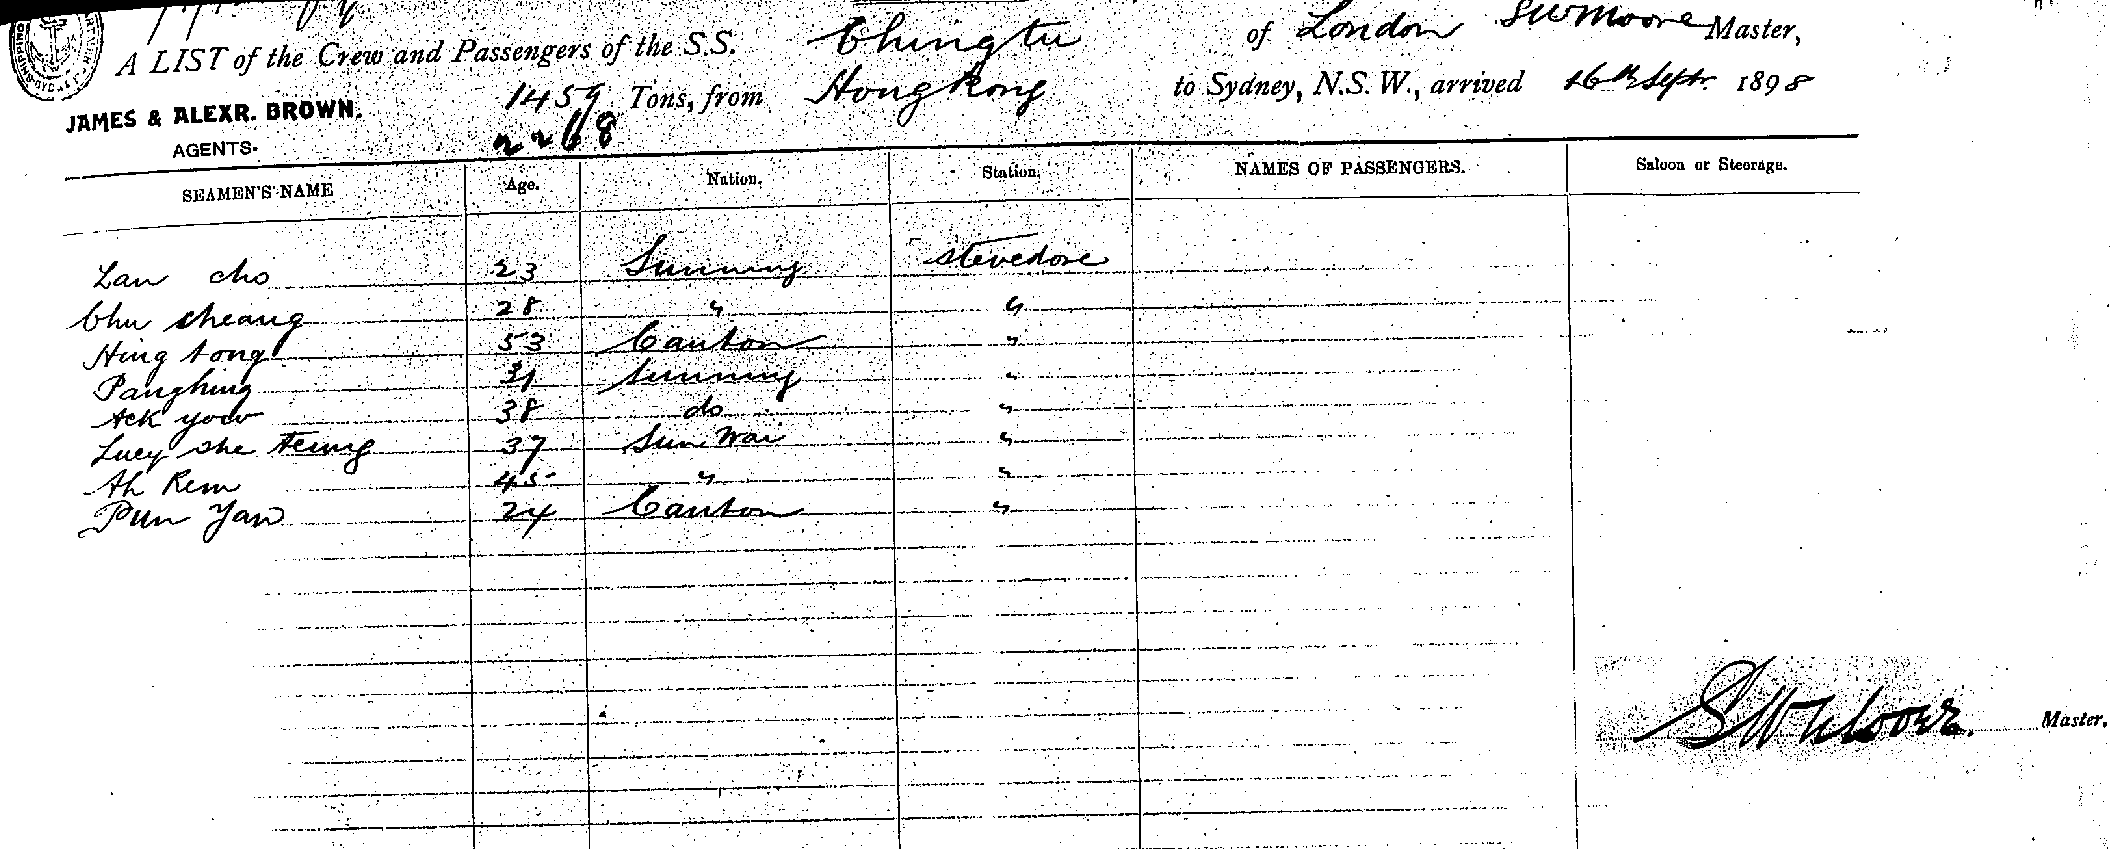 A LIST of the Crew and Passengers of the S.S. Chingtu of London SWMoore Master,
JAMES & ALEXR. BROWN.
AGENTS.
1459 Tons, from Hong Kong to Sydney, N.S.W., arrived 16th Septr. 1898
2268
SEAMEN'S NAME Age. Nation. Station. NAMES OF PASSENGERS. Saloon or Steerage.
Lan cho 23 Sunning stevedore
Chu sheang 28 " "
Hing tong 53 Canton "
Panghing 31 Sunning "
Ack yow 38 do "
Lucy she Teung 37 Sun Wai "
Ah Kem 45 " "
Pun Yan 24 Canton "
SWMoore Master.